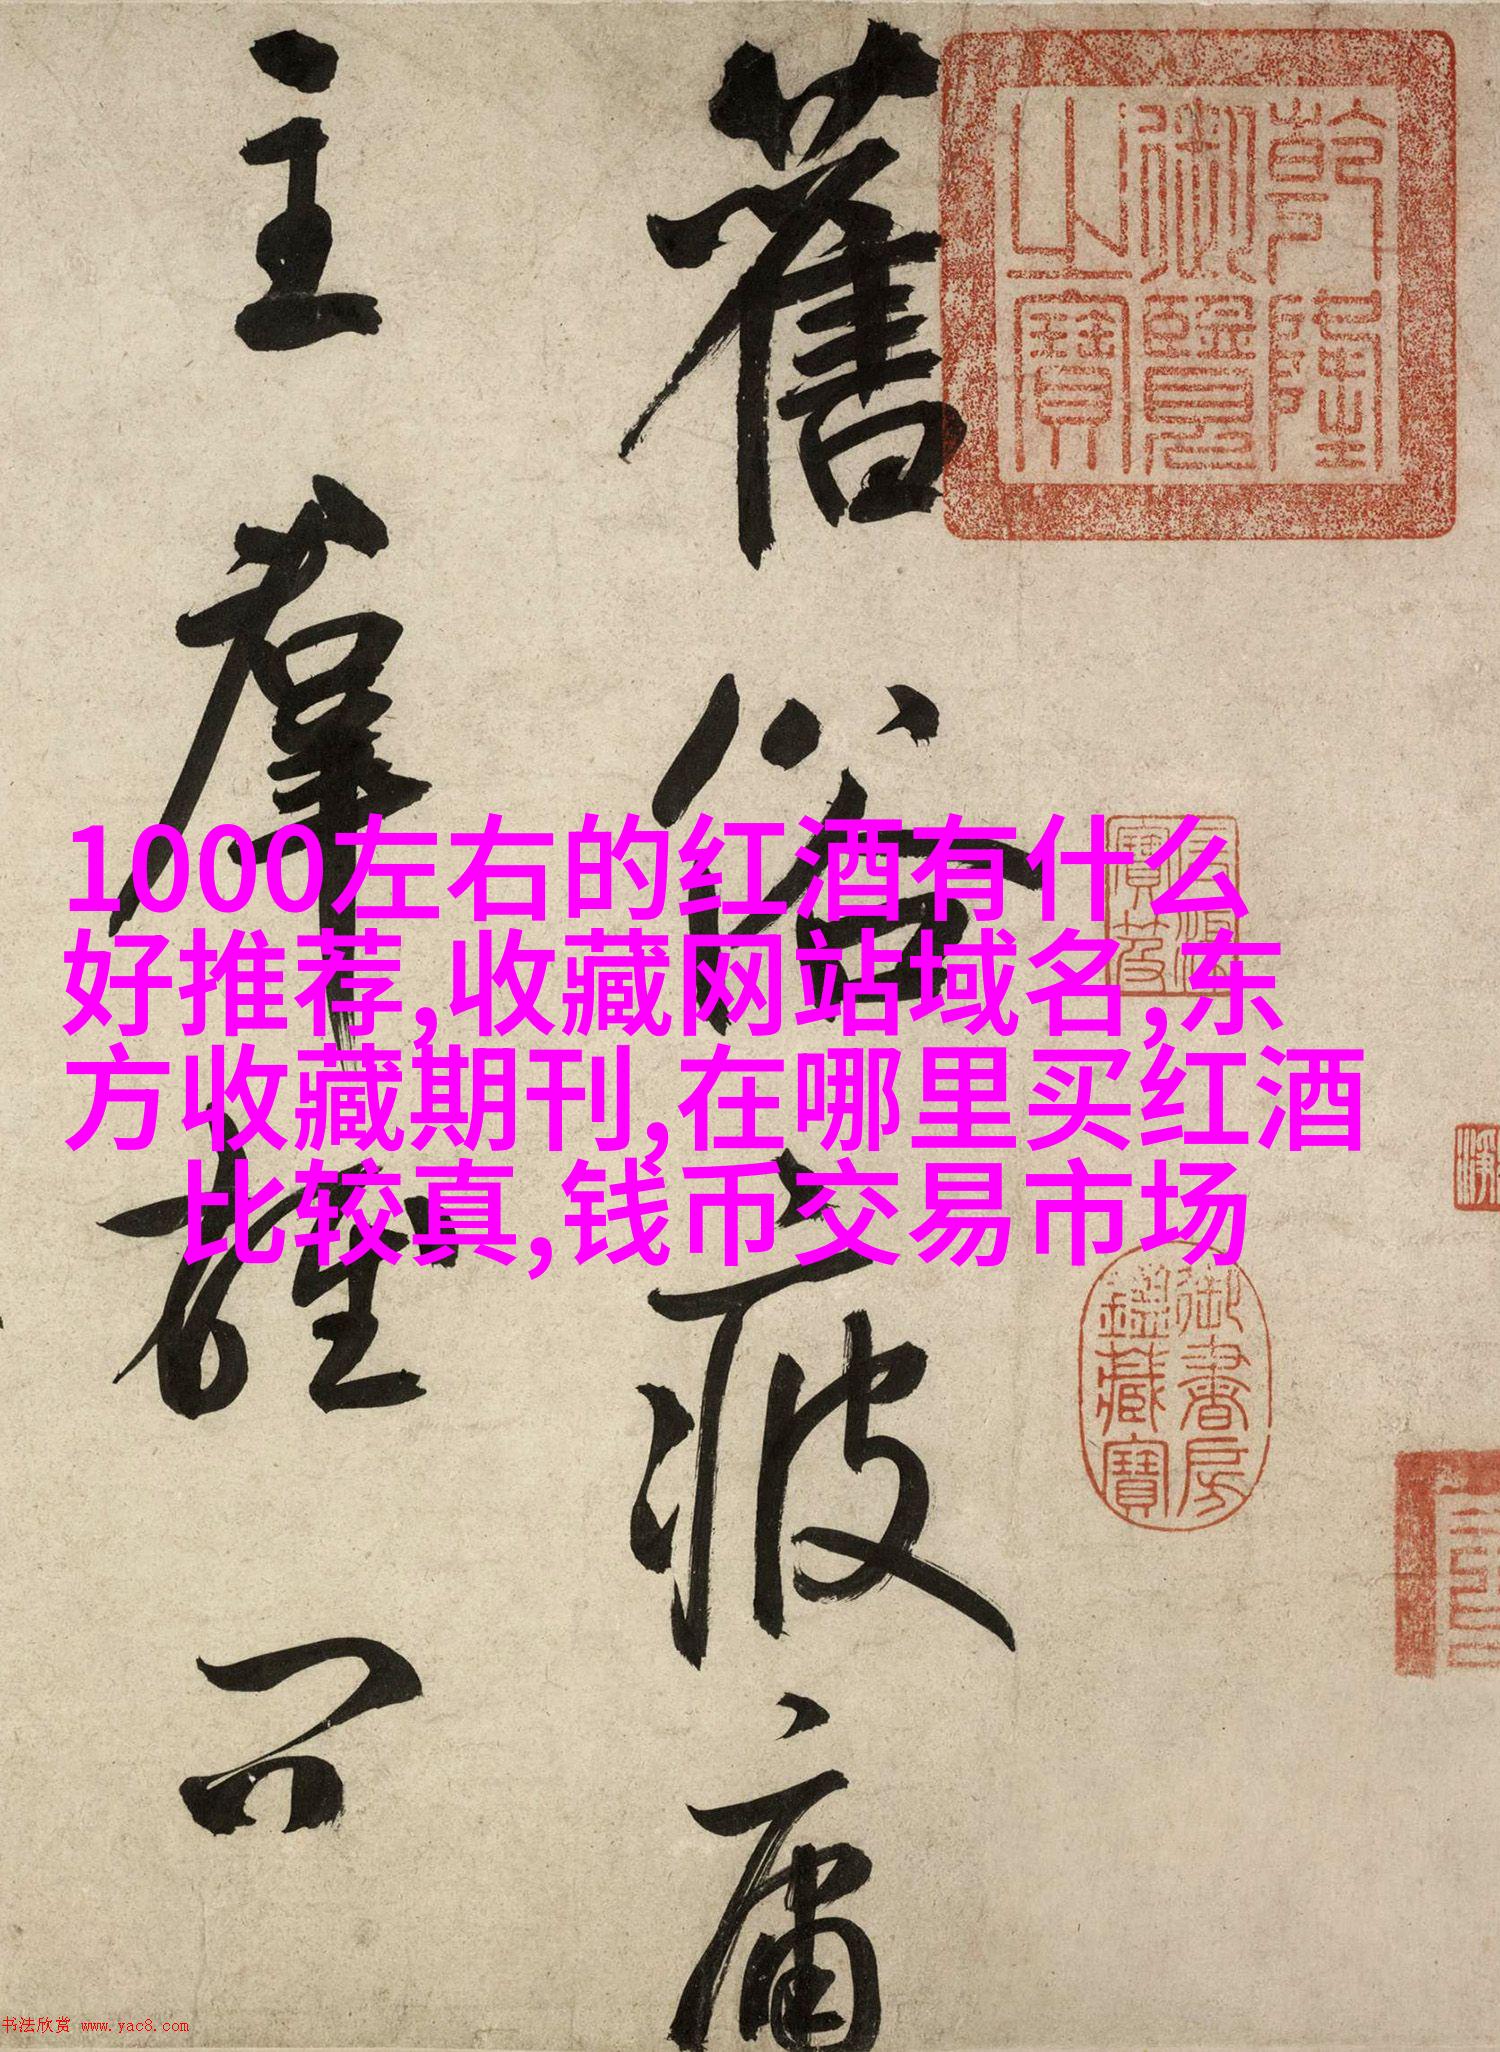 舊俗疲庸
主羣雄只
乾隆
御覽
之寶
1000左右的红酒有什么
好推荐,收藏网站域名,东
方收藏期刊,在哪里买红酒
比较真,钱币交易市场
御書房
鑑藏寶
书法欣赏 www.yac8.com